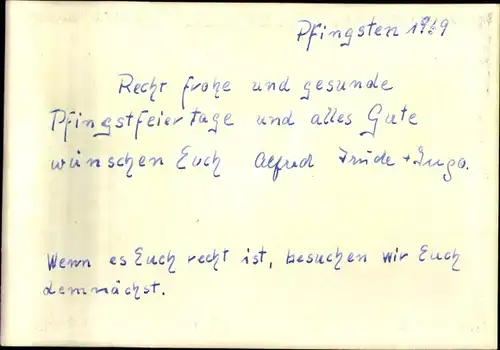 Pfingsten 1969
Recht frohe und gesunde
Pfingstfeiertage und alles Gute
wünschen Euch Alfred Trude + Ingo.
Wenn es Euch recht ist, besuchen wir Euch
demnächst.